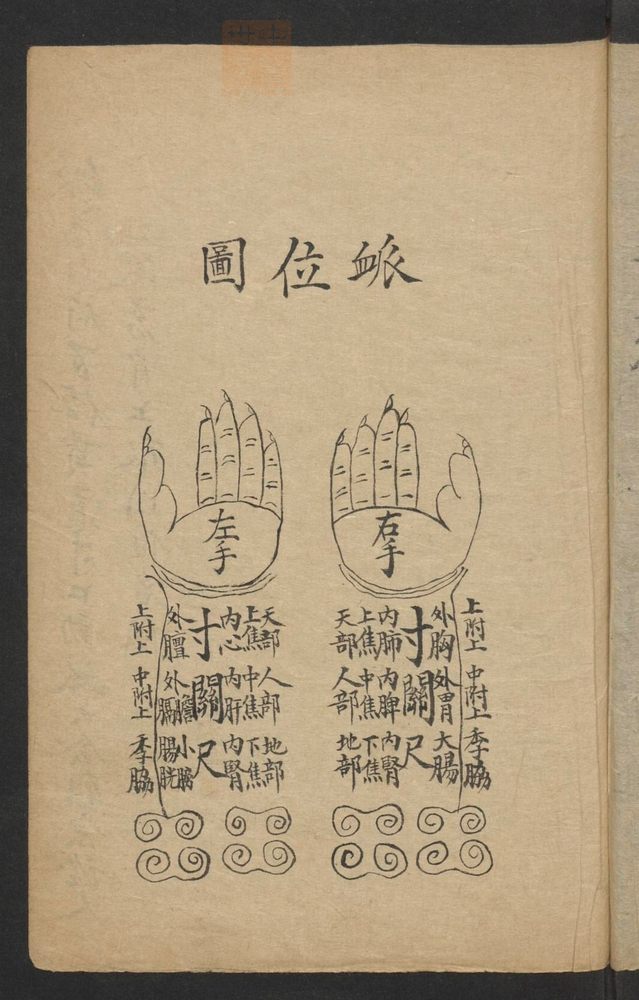 衇位圖
右手
左手
上附上 中附上 季脇
外胸 外胃 大腸
寸關尺
內肺 內脾 內腎
上焦 中焦 下焦
天部 人部 地部
天部 人部 地部
上焦 中焦 下焦
內心 內肝 內腎
寸關尺
外膻 外膽膈 小腸膀胱
上附上 中附上 季脇